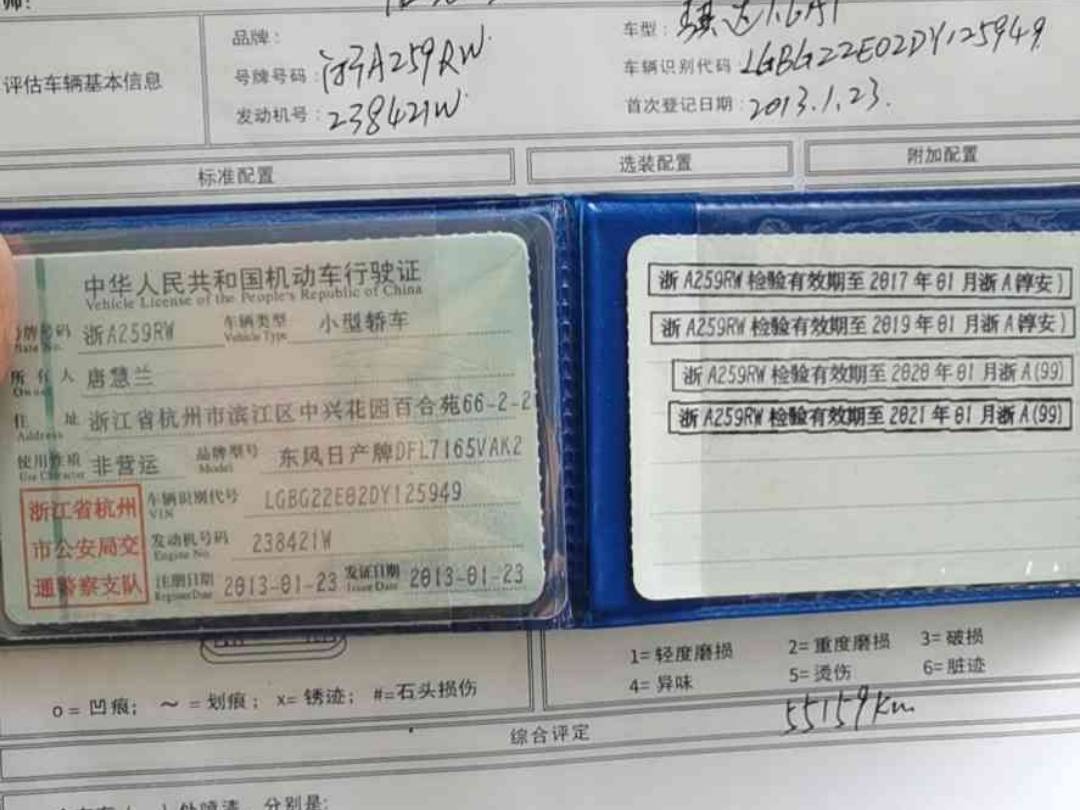 师:
品牌:
车型: 骐达1.6AT
评估车辆基本信息
号牌号码: 浙A259RW
车辆识别代码: LGBG22E02DY125949
发动机号: 238421W
首次登记日期: 2013.1.23.
标准配置
选装配置
附加配置
中华人民共和国机动车行驶证
Vehicle License of the People's Republic of China
号牌号码 浙A259RW 车辆类型 小型轿车
Plate No. Vehicle Type
所有人 唐慧兰
Owner
住址 浙江省杭州市滨江区中兴花园百合苑66-2-2
Address
使用性质 非营运 品牌型号 东风日产牌DFL7165VAK2
Use Character Model
浙江省杭州
市公安局交
通警察支队
车辆识别代号 LGBG22E02DY125949
VIN
发动机号码 238421W
Engine No.
注册日期 2013-01-23 发证日期 2013-01-23
Register Date Issue Date
浙A259RW检验有效期至2017年01月浙A(淳安)
浙A259RW检验有效期至2019年01月浙A(淳安)
浙A259RW检验有效期至2020年01月浙A(99)
浙A259RW检验有效期至2021年01月浙A(99)
o=凹痕; ～=划痕; x=锈迹; #=石头损伤
1=轻度磨损 2=重度磨损 3=破损
4=异味 5=烫伤 6=脏迹
55159km
综合评定
处喷漆,分别是: